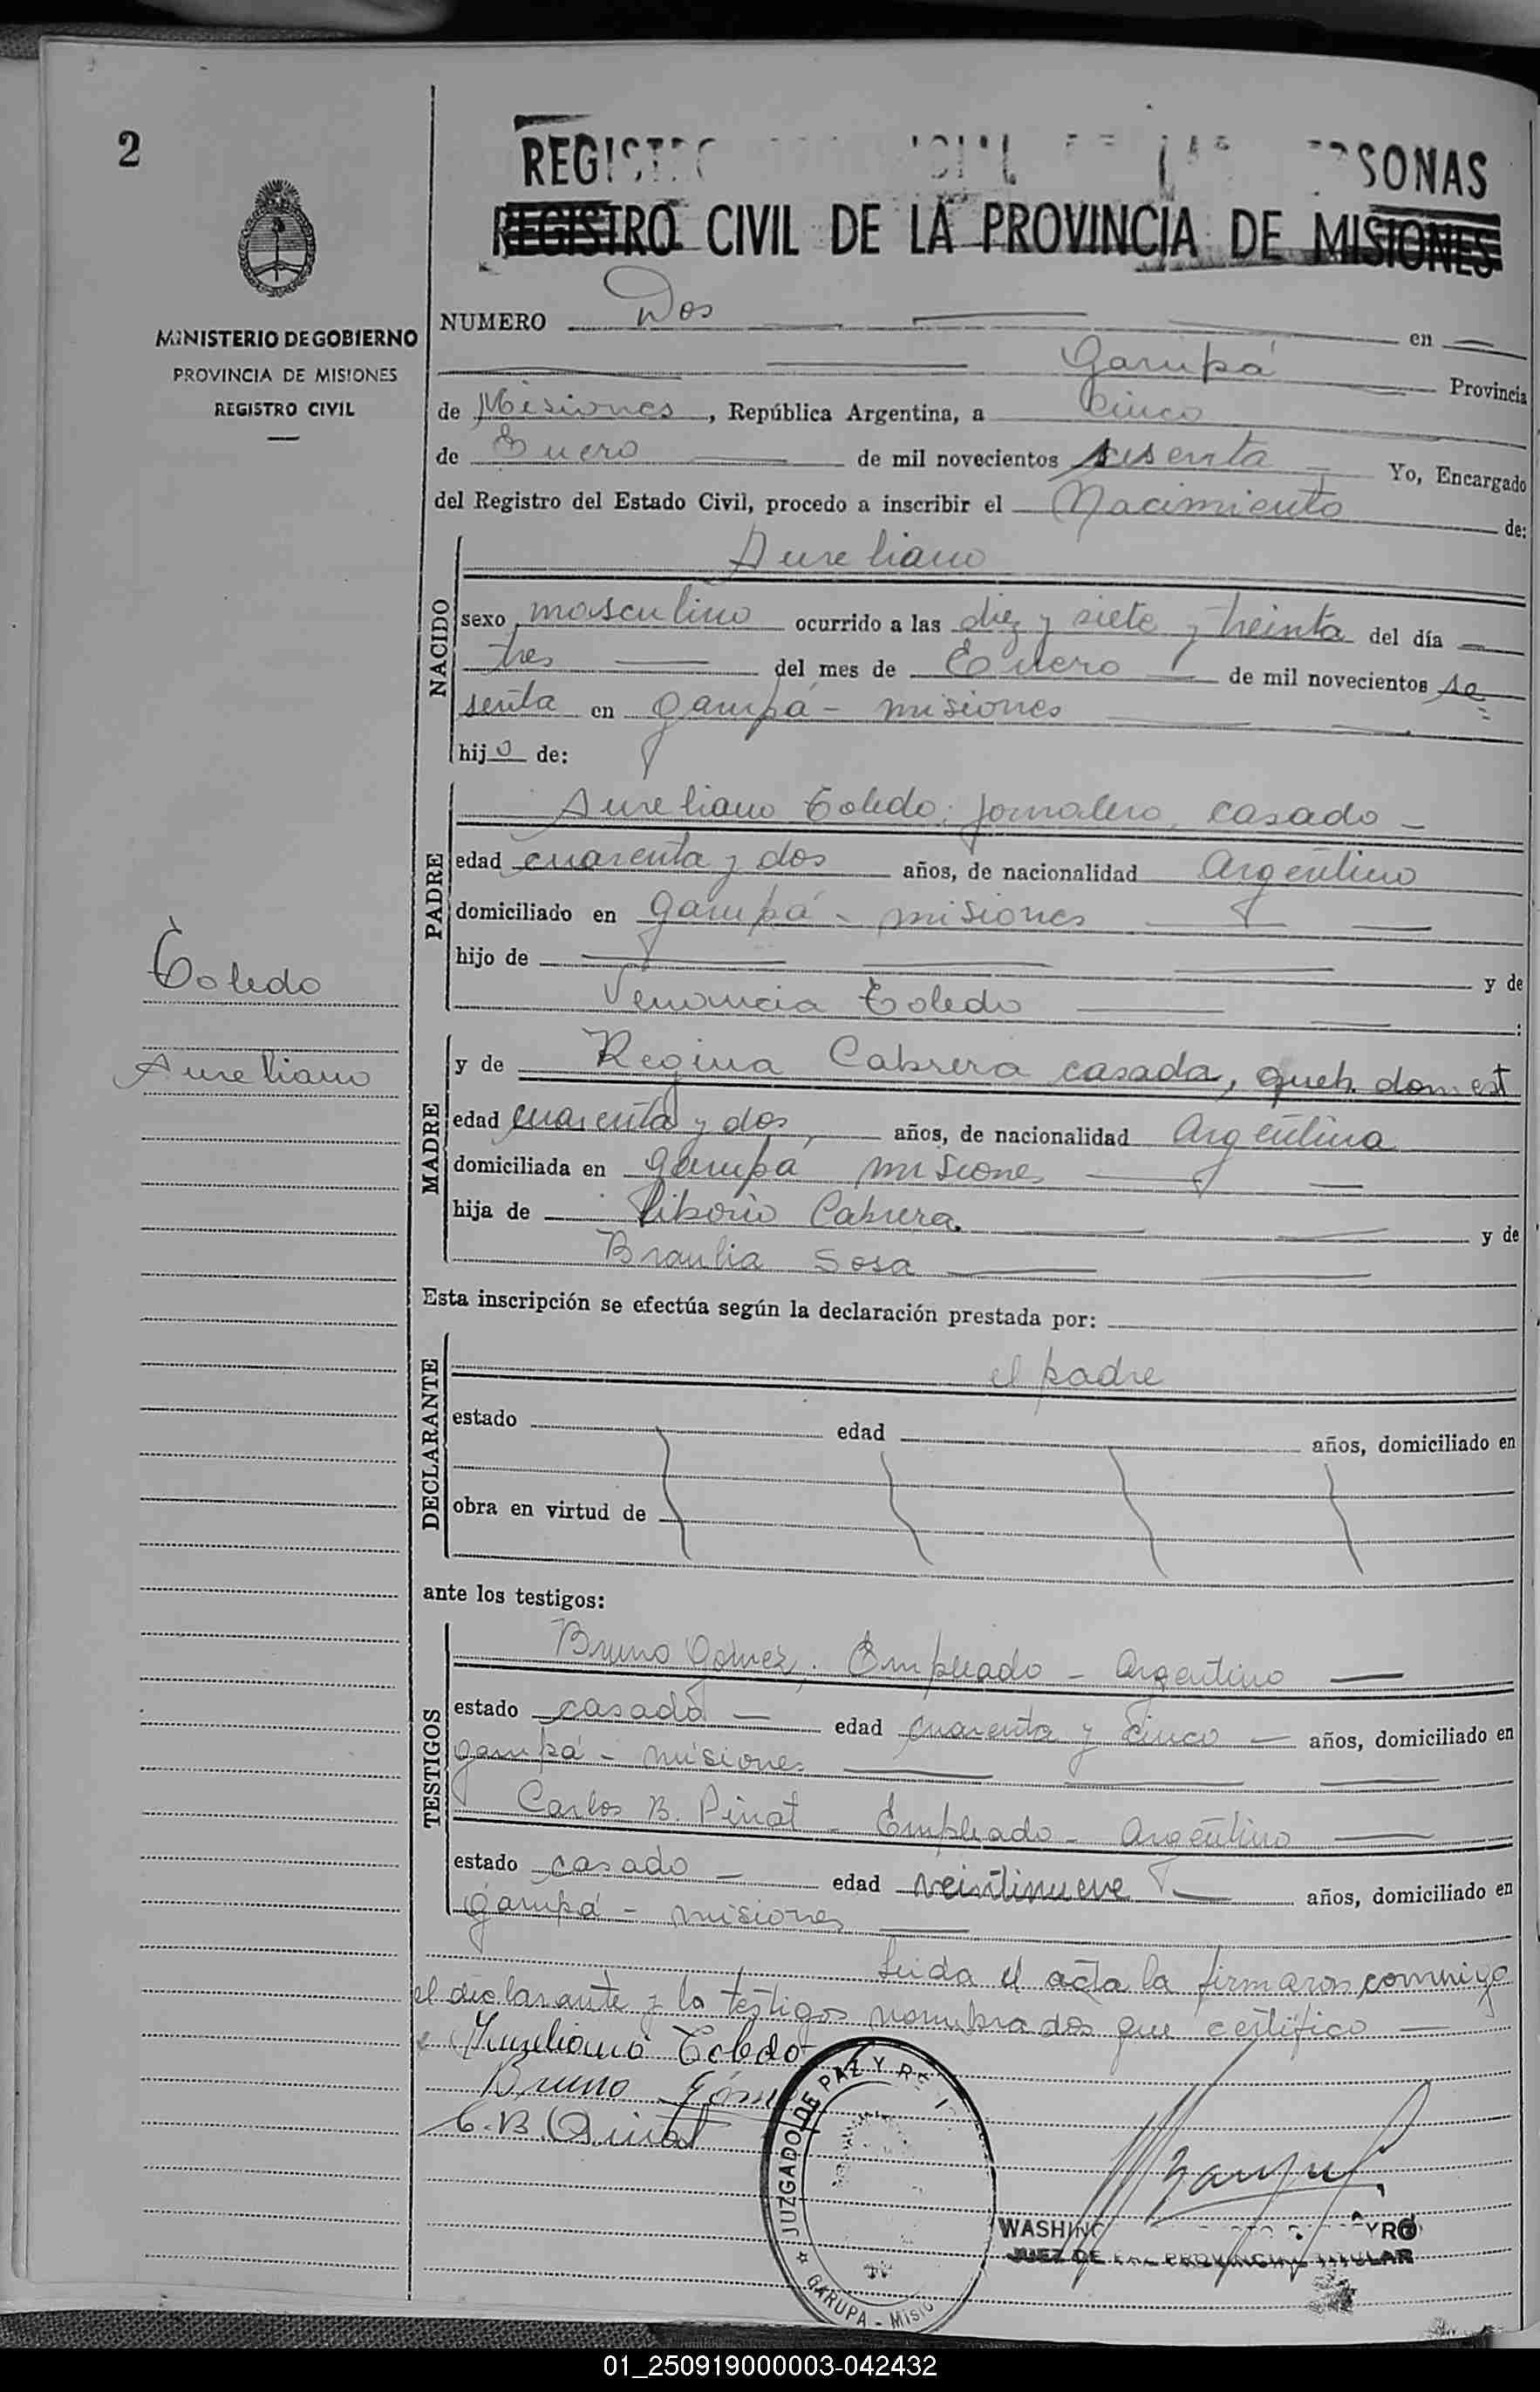 2
REGISTRO SONAS
REGISTRO CIVIL DE LA PROVINCIA DE MISIONES
MINISTERIO DE GOBIERNO
PROVINCIA DE MISIONES
REGISTRO CIVIL
NUMERO Dos en
Garupá Provincia
de Misiones, República Argentina, a Cinco
de Enero de mil novecientos sesenta Yo, Encargado
del Registro del Estado Civil, procedo a inscribir el Nacimiento de:
NACIDO
Aureliano
sexo masculino ocurrido a las diez y siete y treinta del día
tres del mes de Enero de mil novecientos se
senta en Garupá - misiones
hijo de:
PADRE
Aureliano Toledo, jornalero, casado -
edad cuarenta y dos años, de nacionalidad Argentino
domiciliado en Garupá - misiones
hijo de y de
Venancia Toledo :
Toledo
Aureliano
MADRE
y de Regina Cabrera casada, queh. domest
edad cuarenta y dos, años, de nacionalidad Argentina
domiciliada en Garupá misiones
hija de Liborio Cabrera y de
Braulia Sosa
Esta inscripción se efectúa según la declaración prestada por:
DECLARANTE
el padre
estado edad años, domiciliado en
obra en virtud de
ante los testigos:
TESTIGOS
Bruno Gómez, Empleado - Argentino
estado casado - edad cuarenta y cinco - años, domiciliado en
Garupá - misiones
Carlos B. Pinat - Empleado - Argentino
estado casado - edad veintinueve años, domiciliado en
Garupá - misiones
Leida el acta la firmaron conmigo
el declarante y los testigos nombrados que certifico -
Aureliano Toledo
Bruno Góm
C. B. Pinat
JUZGADO DE PAZ Y RE
GARUPA - Misio
WASHING YRO
JUEZ DE PAZ PROVINCIAL TITULAR
01_250919000003-042432